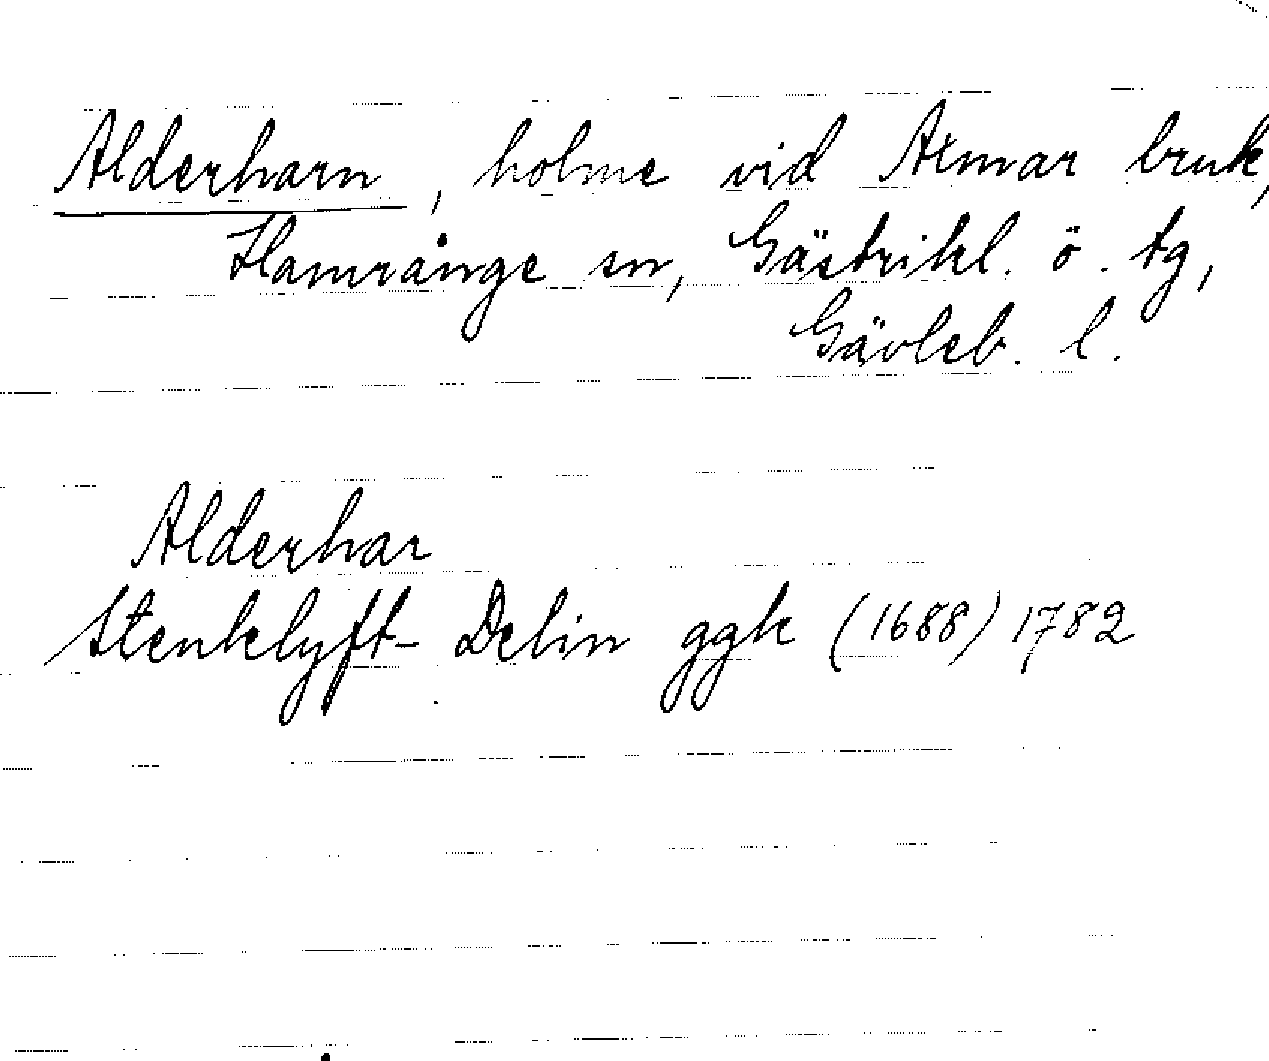 Alderharn, holme vid Axmar bruk,
Hamrånge sn, Gästrikl. ö. tg,
Gävleb. l.
Alderhar
Stenklyft- Delin ggk (1688) 1782